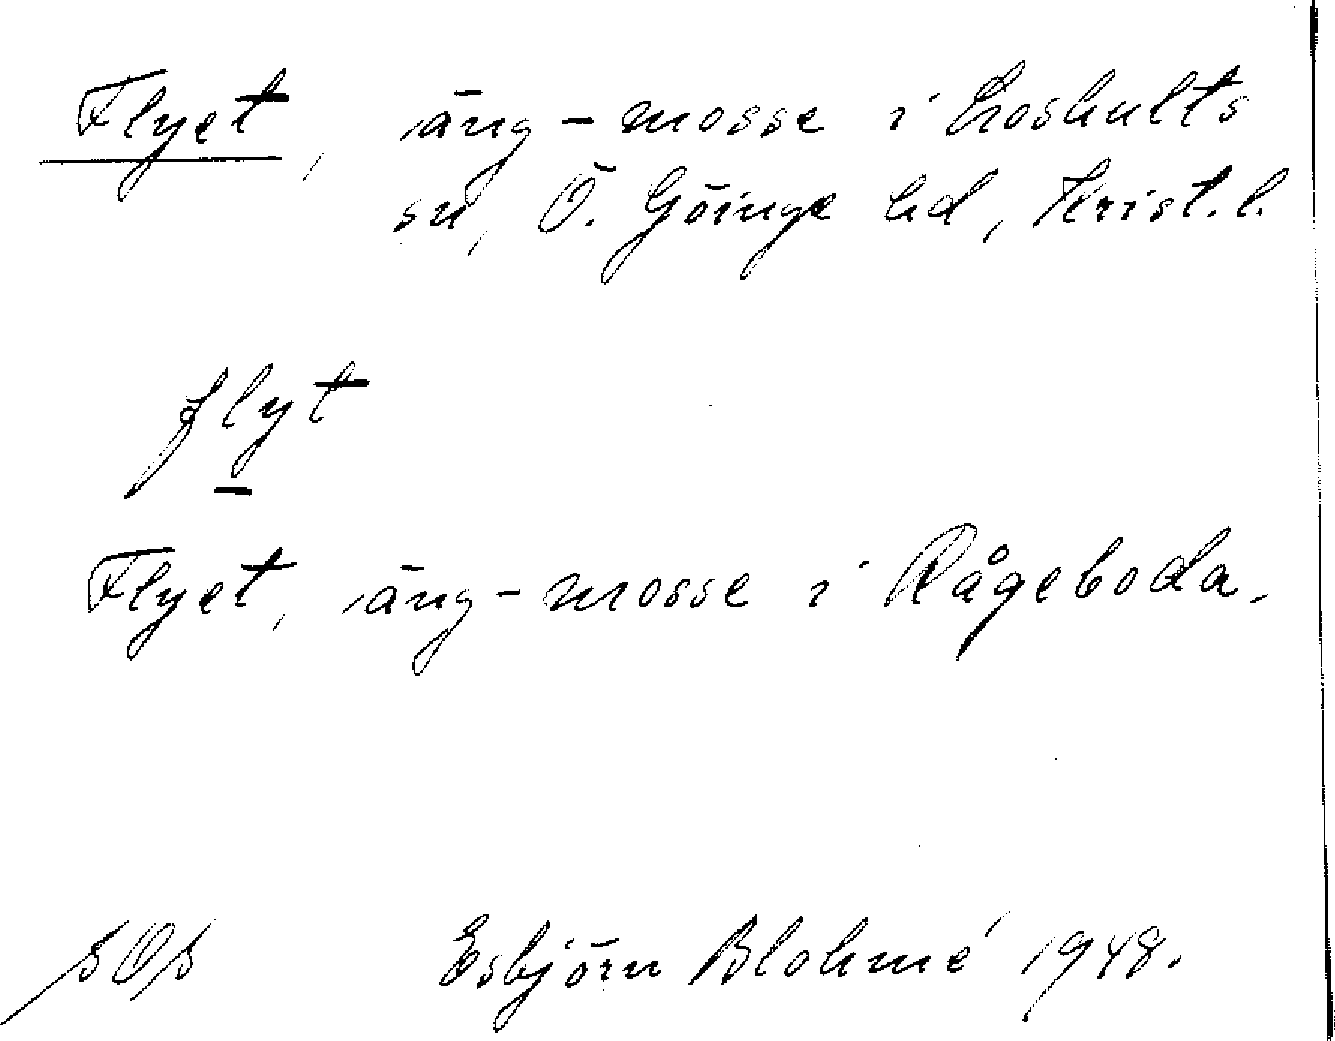 Flyet, äng-mosse i Loshults
sn, Ö. Göinge hd, Krist.l.
flyt
Flyet, äng-mosse i Rågeboda.
Esbjörn Blohmé 1948.